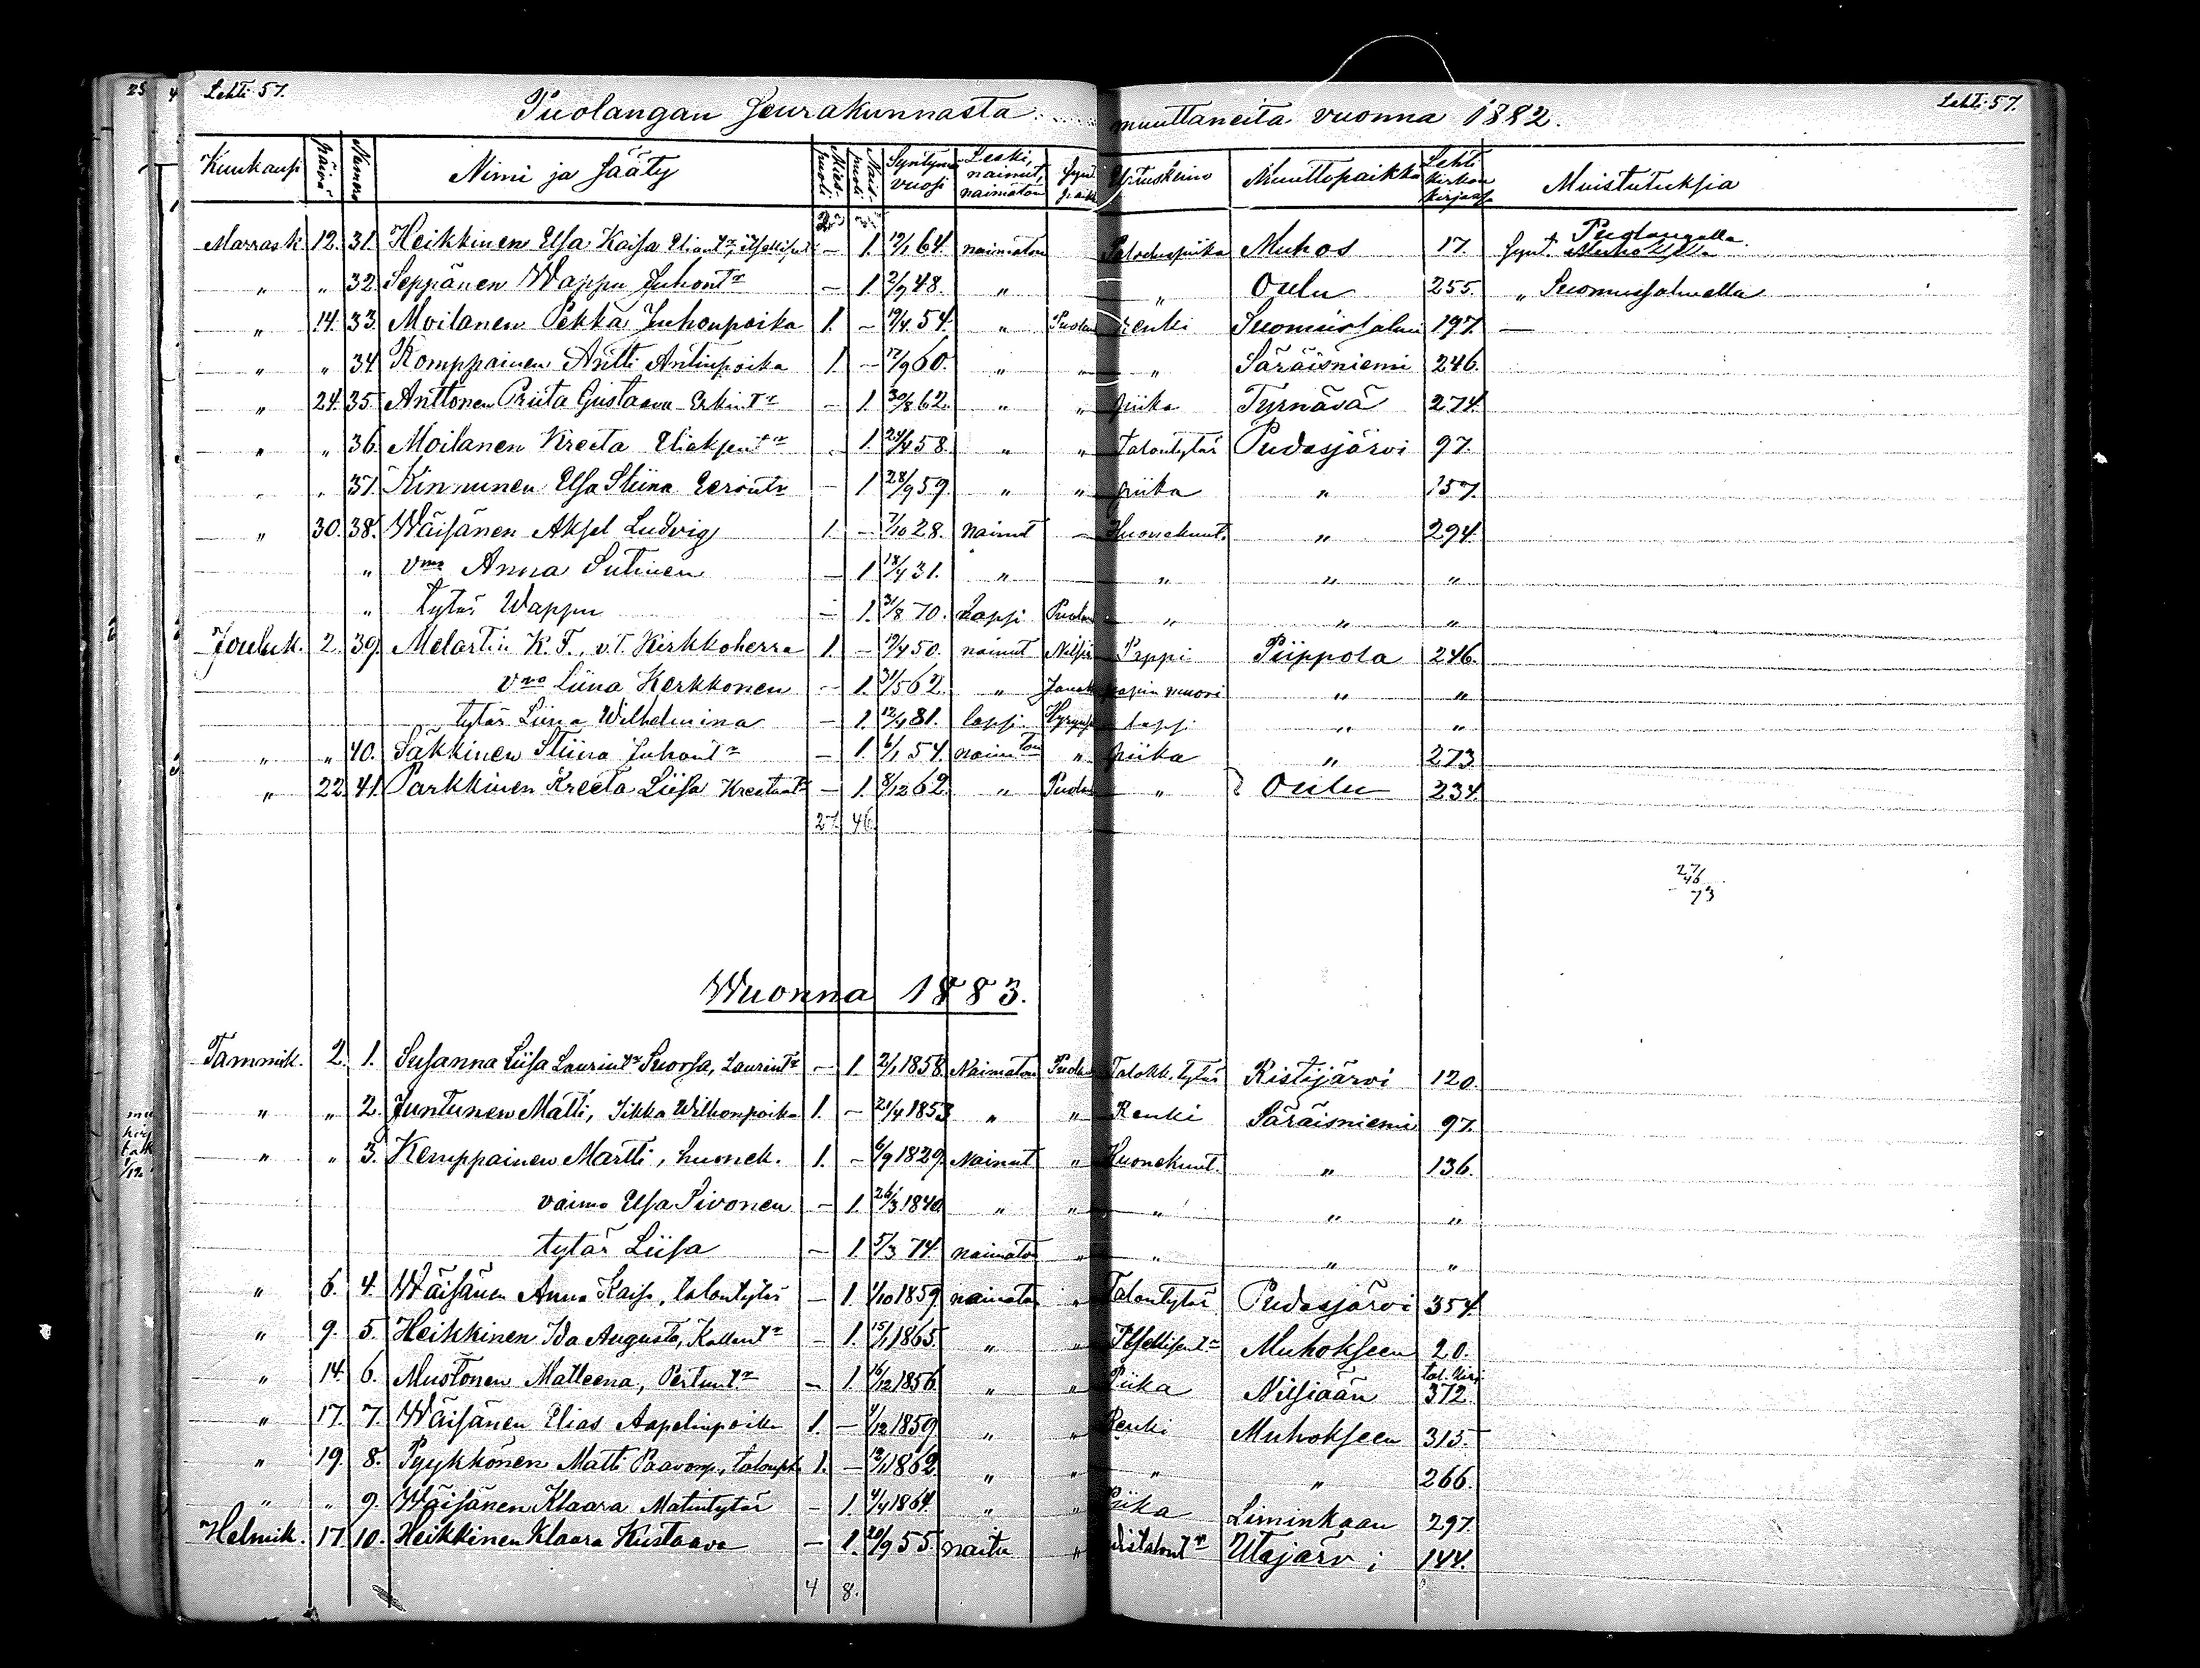 Lehti 57.
Lehti 57.
Puolangan Seurakunnasta muuttaneita vuonna 1882.
Kuukausi päivä Numero Nimi ja Sääty Mies-puoli. Nais-puoli. Syntymä vuosi Leski, nainut, naimaton Synt. paikk Muuttopaikka Lehti kirkon kirjassa Muistutuksia
Marrask. 12. 31. Heikkinen Elsa Kaisa – 1. 64. naimaton Muhos 17. Synt. Puolangalla
„ „ 32. Seppänen Wappu Juhontr – 1 48. „ „ Oulu 255. „ Suomussalmella
„ 14. 33. Moilanen Pekka Juhonpoika 1. – 19/4 54. „ Puolan renki Suomussalmi 197. —
„ „ 34. Komppainen Antti Antinpoika 1. – 17/9 60. „ „ „ Säräisniemi 246.
„ 24. 35. Anttonen Priita Gustaava Erkintr – 1. 30/8 62. „ „ piika Tyrnävä 274.
„ „ 36. Moilanen Kreeta – 1. 24/4 58. „ „ Talontytär Pudasjärvi 97.
„ „ 37. Kinnunen Elsa Stiina Eerontr – 1 28/9 59. „ „ piika „ 157.
„ 30. 38. Wäisänen Aksel Ludvig 1. – 7/10 28. nainut – Huonekunt. „ 294.
„ vmo Anna Sutinen – 1 18/4 31. „ „ „ „
„ tytär Wappu – 1. 31/8 70. Lapsi Puolan „ „ „
Jouluk. 2. 39. Melartin K. F., v.t. Kirkkoherra 1. – 19/4 50. nainut Nilsiä Pappi Piippola 246.
vmo Liina Kerkkonen – 1. 31/5 62. „ papin muori „ „
tytär Liina Wilhelmina – 1. 12/4 81. lapsi. lapsi „ „
„ „ 40. Säkkinen Stiina Juhontr – 1 6/1 54. naimton „ piika „ 273
„ 22. 41. Parkkinen Kreeta Liisa – 1. 8/12 62. „ Puolan „ Oulu 234.
27. 46.
27
46
73
Wuonna 1883.
Tammik. 2. 1. Susanna Liisa Laurintr Suorsa, Laurintr – 1. 2/1 1858. Naimaton Puolan Talokk. tytär Ristijärvi 120.
„ „ 2. Juntunen Matti, Iikka Wilhonpoika 1. – 21/4 1853 „ „ Renki Säräisniemi 97.
„ „ 3. Kemppainen Martti, huonek. 1. – 6/9 1829. Nainut „ Huonekunt. „ 136.
vaimo Elsa Sivonen – 1. 26/3 1840. „ „ „ „ „
tytär Liisa – 1. 5/3 74. naimaton „ „ „ „
„ 6. 4. Wäisänen Anna Kaisa, talontytär – 1. 1/10 1859 naimaton „ Talontytär Pudasjärvi 354.
„ 9. 5. Heikkinen Ida Augusta, Kallentr – 1. 15/1 1865. „ „ Muhokseen 20.
„ 14. 6. Mustonen Matleena, Pertuntr – 1. 16/12 1856. „ „ Piika Nilsiään 372.
„ 17. 7. Wäisänen Elias Aapelinpoika 1. – 1/12 1859 „ „ Renki Muhokseen 315.
„ 19. 8. Pyykkönen Matti Paavonp., talonpk. 1. – 1862 „ „ „ „ 266.
„ „ 9. Wäisänen Klaara Matintytär – 1. 4/4 1864. „ „ Piika Liminkaan 297.
Helmik. 17. 10. Heikkinen Klaara Kustaava – 1. 20/9 55. naitu „ Utajärvi 144.
4 8.